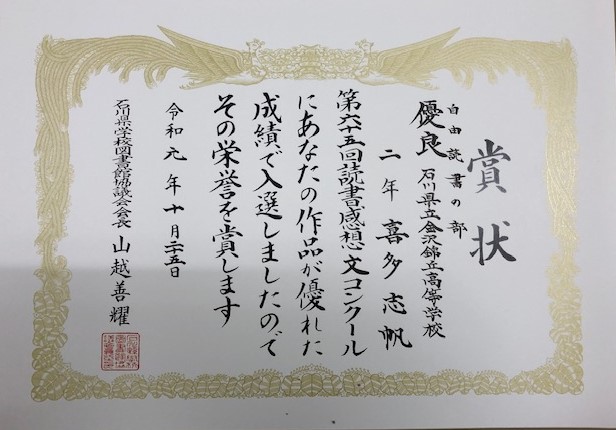 賞状
自由読書の部
優良 石川県立金沢錦丘高等学校
二年 喜多志帆
第六十五回読書感想文コンクール
にあなたの作品が優れた
成績で入選しましたので
その栄誉を賞します
令和元年十月二五日
石川県学校図書館協議会会長 山越善耀